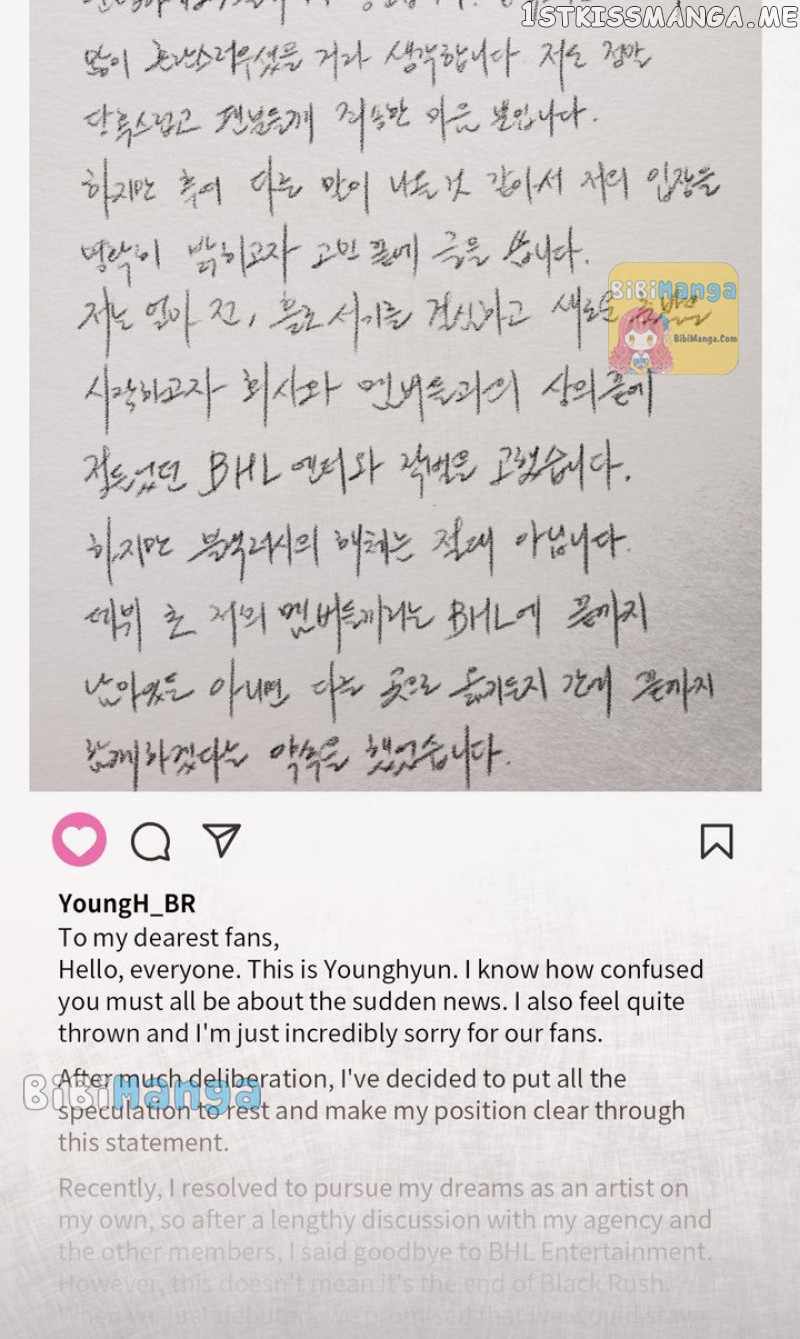 1STKISSMANGA.ME
많이 혼란스러우셨을 거라 생각합니다 저도 정말
당혹스럽고 팬분들께 죄송한 마음 뿐입니다.
하지만 후에 다른 말이 나올것 같아서 저의 입장을
명확히 밝히고자 고민 끝에 글을 씁니다.
저는 얼마 전, 홀로서기를 결심하고 새로운
BiBiManga
BibiManga.Com
시작하고자 회사와 멤버들과의 상의끝에
정들었던 BHL 엔터와 작별을 고했습니다.
하지만 블랙러시의 해체는 절대 아닙니다.
데뷔 초 저의 멤버들끼리는 BHL에 끝까지
남아있든 아니면 다른 곳으로 옮기든지 간에 끝까지
함께하겠다는 약속을 했었습니다.
YoungH_BR
To my dearest fans,
Hello, everyone. This is Younghyun. I know how confused
you must all be about the sudden news. I also feel quite
thrown and I'm just incredibly sorry for our fans.
After much deliberation, I've decided to put all the
BiBiManga
speculation to rest and make my position clear through
this statement.
Recently, I resolved to pursue my dreams as an artist on
my own, so after a lengthy discussion with my agency and
the other members, I said goodbye to BHL Entertainment.
However, this doesn't mean it's the end of Black Rush.